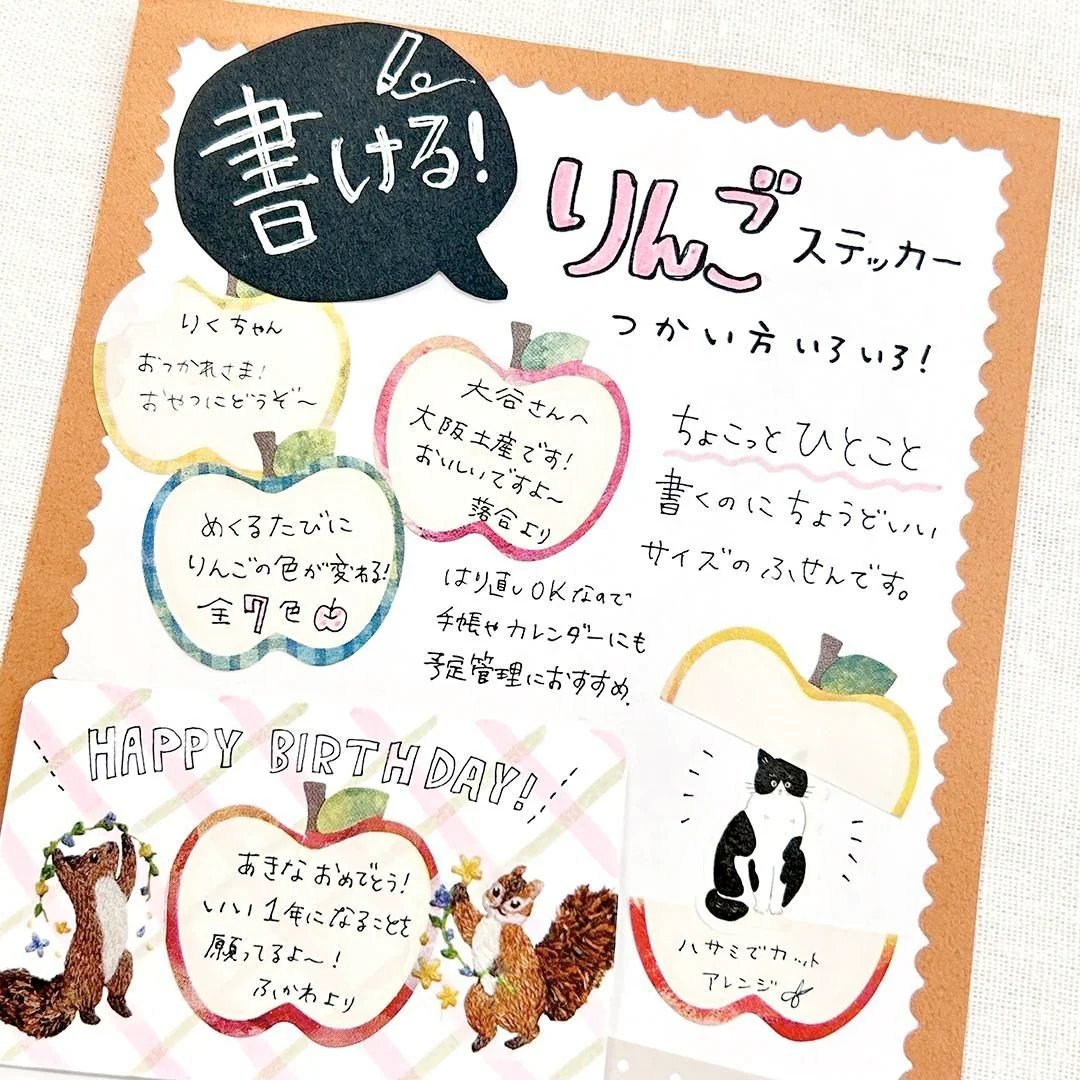 書ける!
りんご ステッカー
つかい方いろいろ!
りくちゃん
おつかれさま!
おやつにどうぞ〜
大谷さんへ
大阪土産です!
おいしいですよ〜
落合より
ちょこっとひとこと
書くのにちょうどいい
サイズのふせんです。
めくるたびに
りんごの色が変わる!
全7色
はり直しOKなので
手帳やカレンダーにも
予定管理におすすめ.
HAPPY BIRTHDAY!
あきなおめでとう!
いい1年になることを
願ってるよ〜!
ふかわより
ハサミでカット
アレンジ